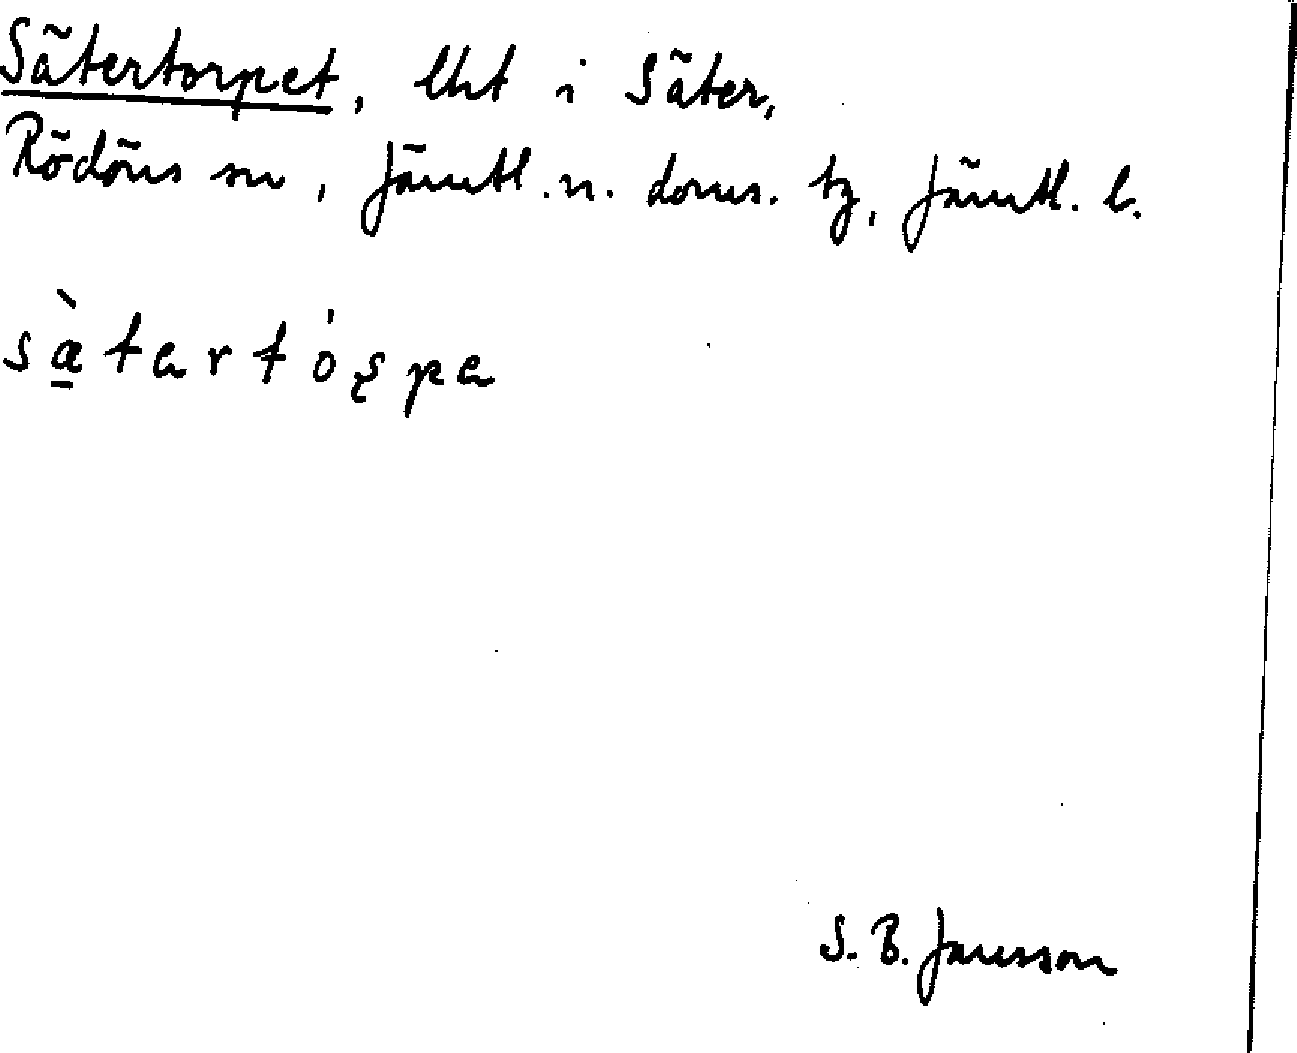 Sätertorpet, lht i Säter,
Rödöns sn, Jämtl. n. doms. tg, Jämtl. l.
sæ̠̀tartóʂpa
S. B. Jansson